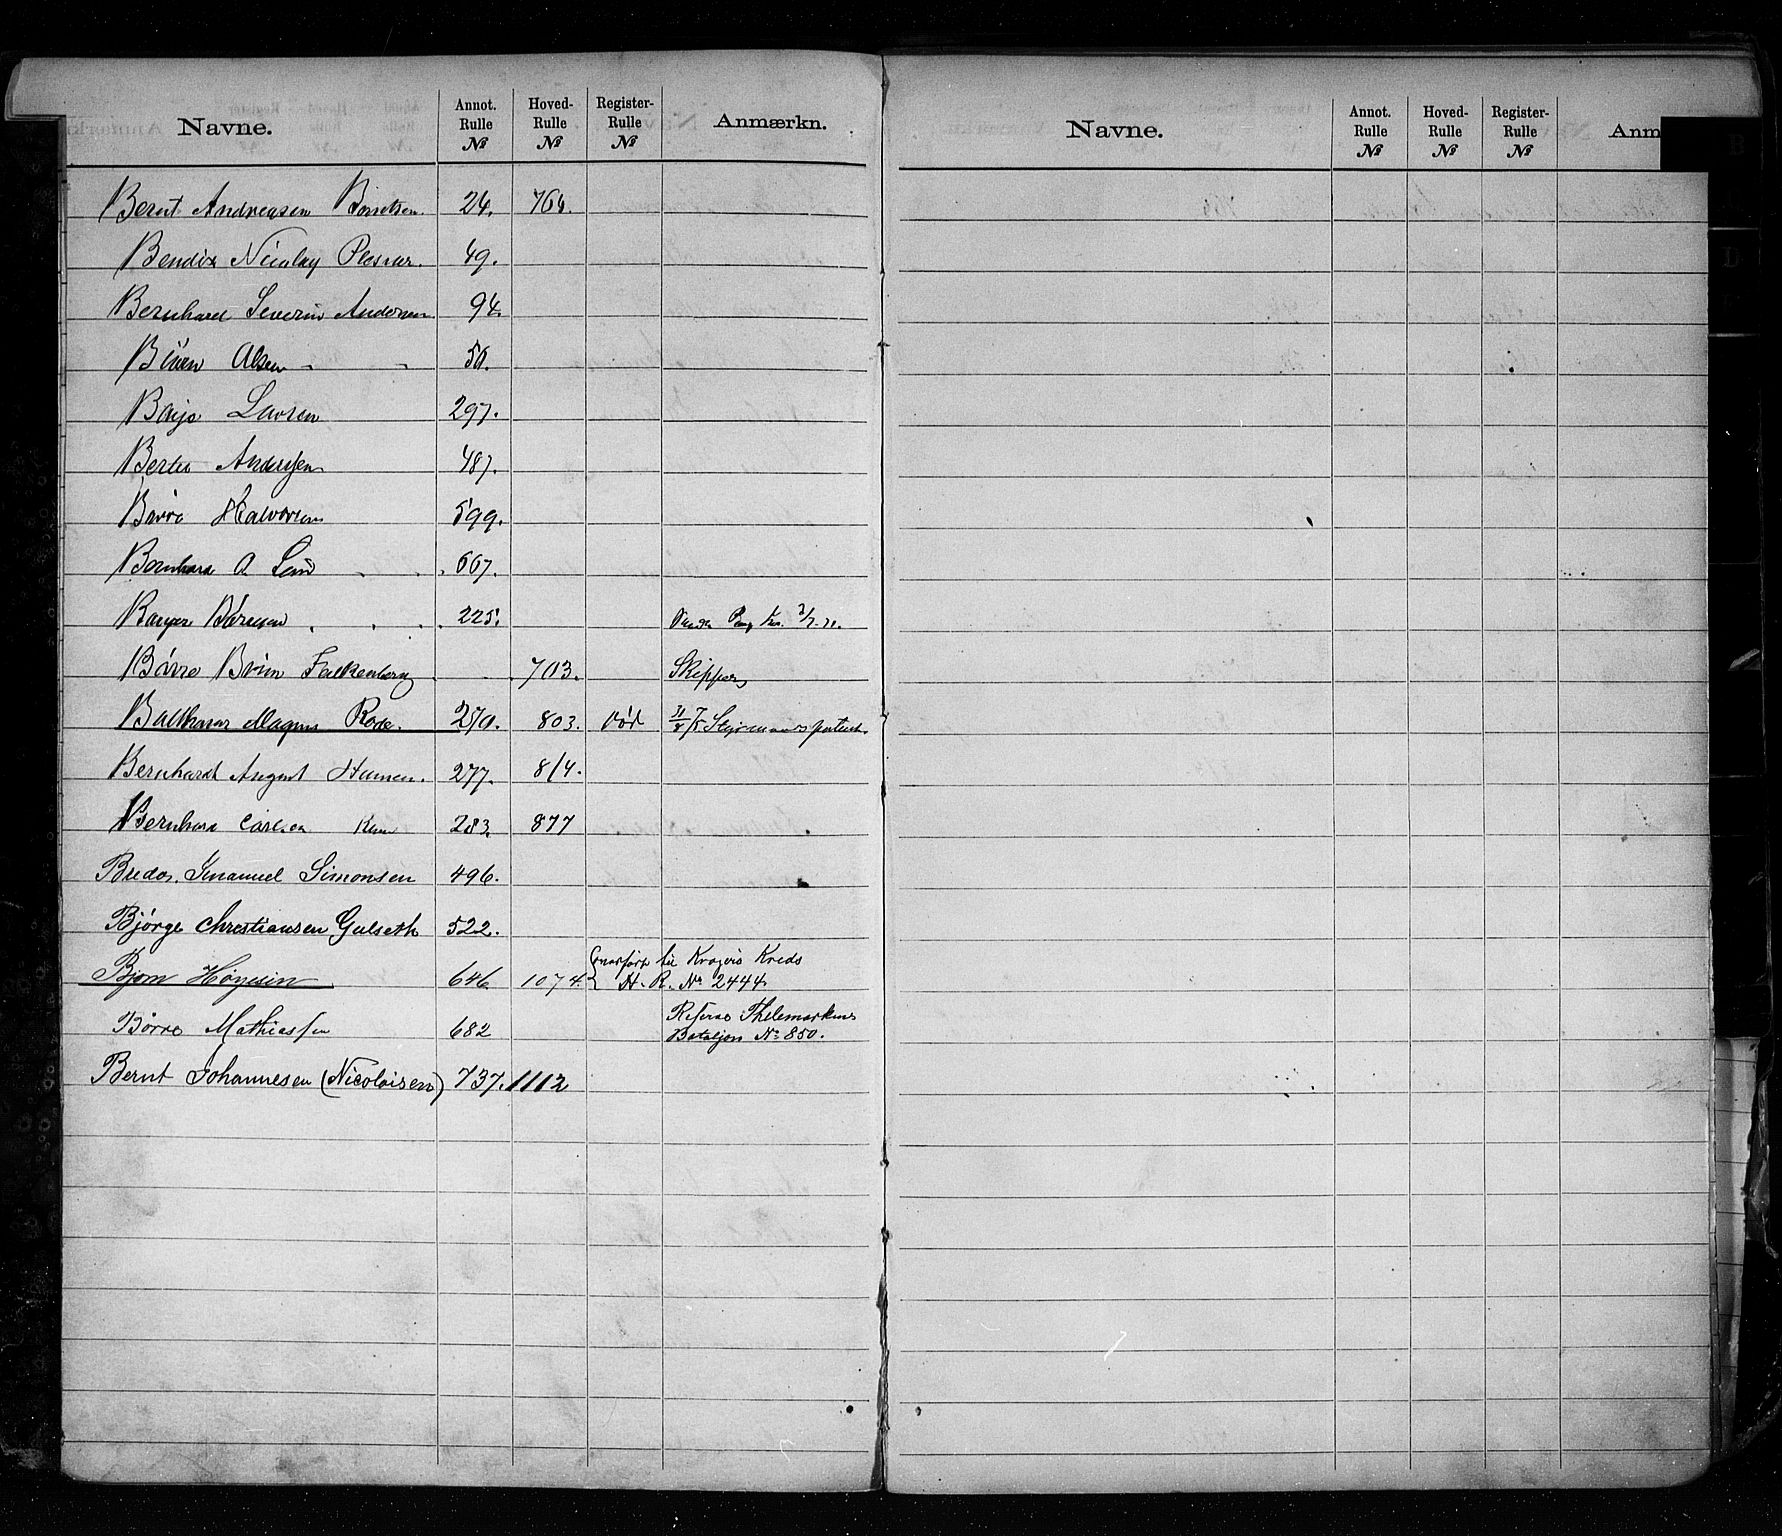 Navne. Annot. Rulle № Hoved- Rulle № Register- Rulle № Anmærkn.
Bernt Andreasen 24. 764.
Bendix Nicolay 49.
Bernhard Severin Andersen 94.
Olsen 56.
Larsen 297.
Andersen 487.
Halvorsen 599.
Bernhard O. 667.
225.
Børre Falkenberg 703. Skipper
Balthazar Magnus Rode. 270. 803. Død Styrmandspatent
Bernhardt August Hansen. 277. 814.
Bernhard Carlsen 283. 877
Bredo. Emanuel Simonsen 496.
Bjørge Christiansen Gulseth 522.
Bjørn Høyesen 646. 1074. overført til Kragerø Kreds
H. R. № 2444.
Børre Mathiassen 682 Reserve Thelemarkens
Bataljon № 850.
Bernt Johannesen (Nicolaisen) 737. 1112
Navne. Annot. Rulle № Hoved- Rulle № Register- Rulle № Anm